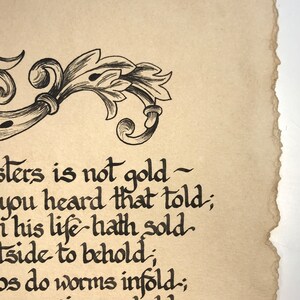 sters is not gold~
you heard that told;
n his life hath sold
tside to behold;
bs do worms infold;